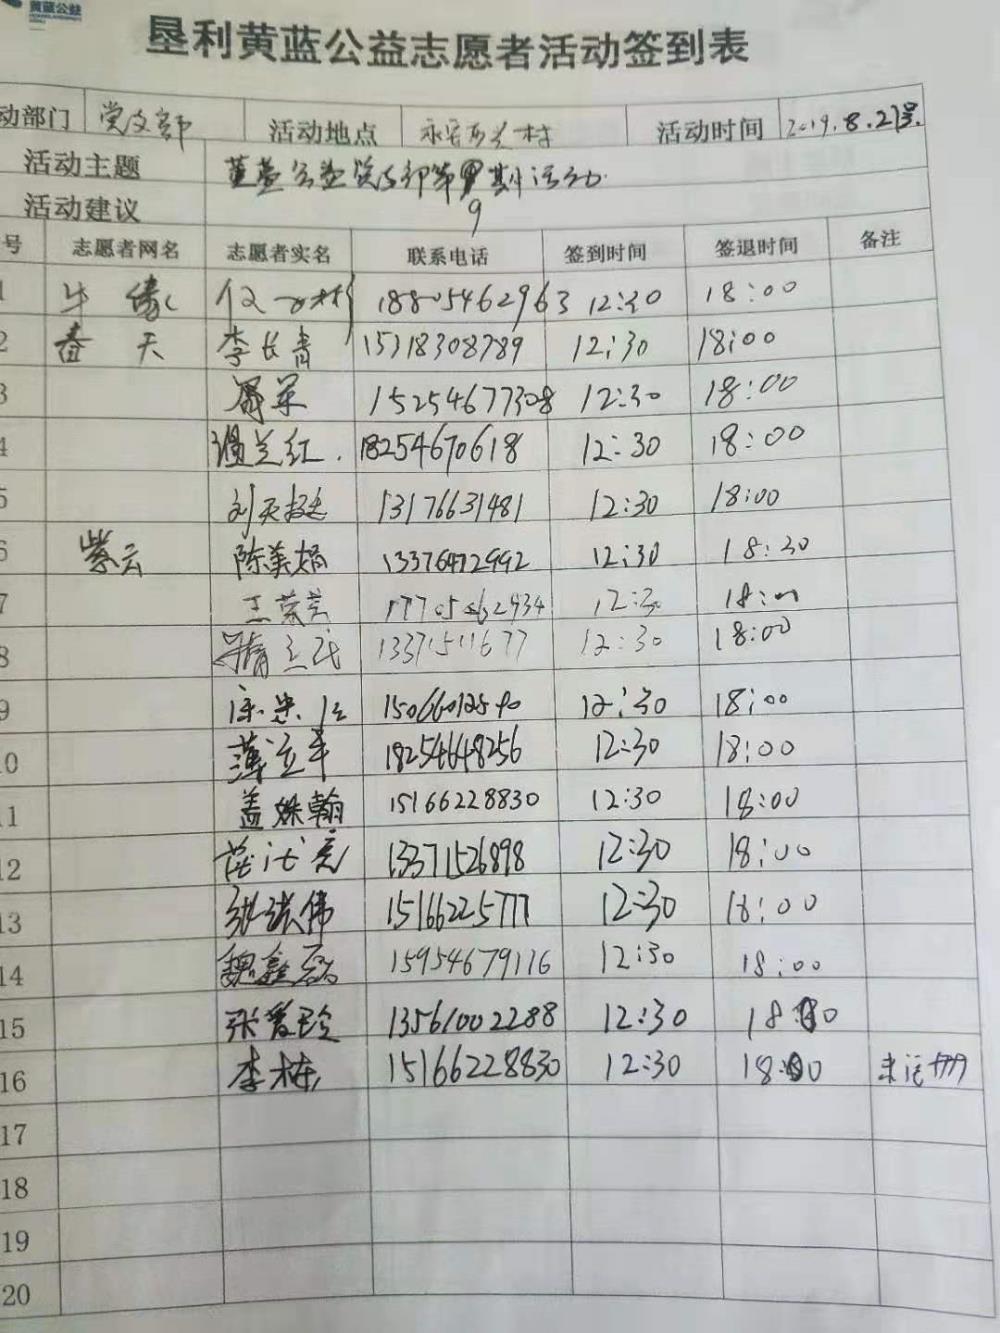 黄蓝公益
垦利黄蓝公益志愿者活动签到表
动部门 党文部 活动地点 永安西兰村 活动时间 2019.8.27号.
活动主题 黄蓝公益党文部第9期活动.
活动建议
号 志愿者网名 志愿者实名 联系电话 签到时间 签退时间 备注
1 牛 缘 18805462963 12:30 18:00
2 春 天 李长青 15318308789 12:30 18:00
3 15254677308 12:30 18:00
4 兰红. 18254670618 12:30 18:00
5 刘天 13176631481 12:30 18:00
6 紫云 陈美娟 13376472992 12:30 18:30
7 王荣芳 17705462934 12:30 18:00
8 13371511677 12:30 18:00
9 15066012590 12:30 18:00
10 薄立军 18254648256 12:30 18:00
11 盖姝翰 15166228830 12:30 18:00
12 13371526898 12:30 18:00
13 张洪伟 15166225777 12:30 18:00
14 魏鑫磊 15954679116 12:30 18:00
15 张爱玲 13561002288 12:30 18:00
16 李栋 15166228830 12:30 18:00 未注册
17
18
19
20